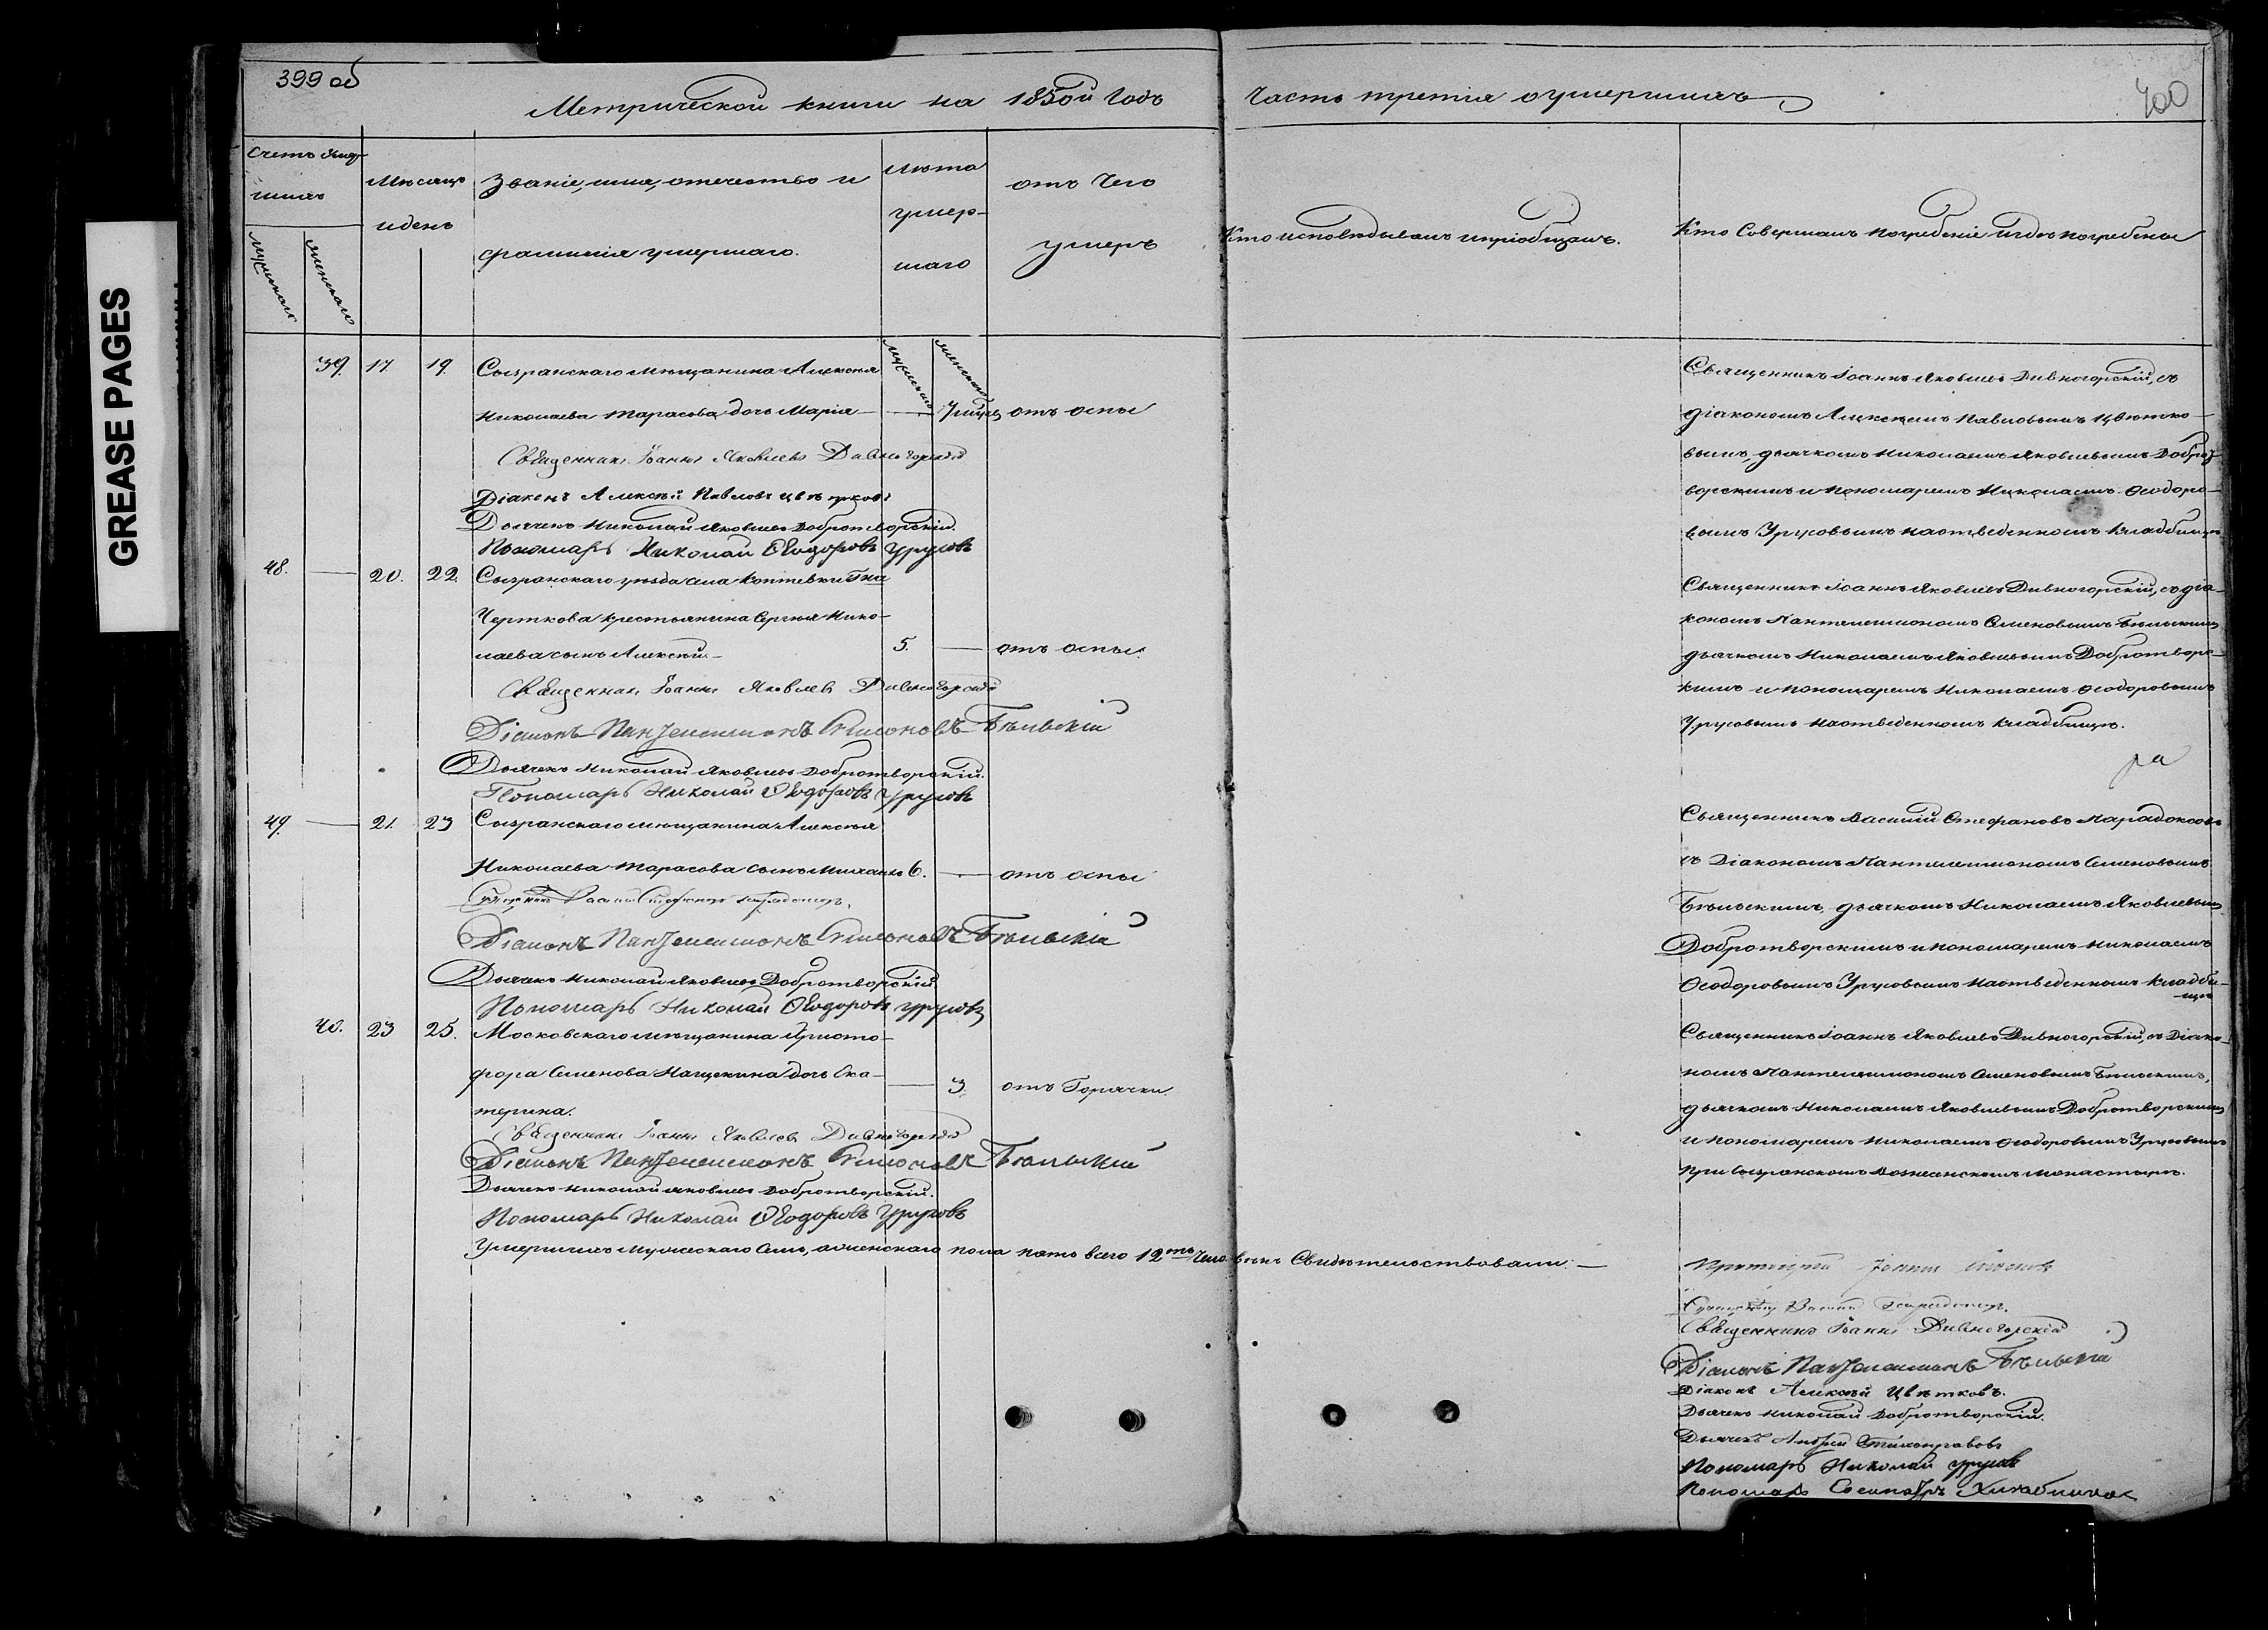 GREASE PAGES
399 об
400
Метрической книги на 1850й годъ
Часть третія о умершихъ
Счетъ умер-
шихъ
мужескаго
женскаго
Мѣсяцъ
и день
Званіе, имя, отечество и
фамилія умершаго.
лѣта
умер-
шаго
отъ чего
умеръ
Кто исповѣдывалъ и пріобщалъ.
Кто совершалъ погребеніе и гдѣ погребены
мужескаго
женскаго
39. 17 19. Сызранскаго мѣщанина Алексѣя
Николаева Тарасова дочь Марія — — отъ оспы
Священникъ Іоаннъ Яковлевъ Дивногорскій
Діаконъ Алексѣй Павловъ Цвѣтковъ
Дьячекъ Николай Яковлевъ Добротворскій.
Пономарь Николай Ѳеодоровъ Урусовъ
Священникъ Іоаннъ Яковлевъ Дивногорскій, съ
діакономъ Алексѣемъ Павловымъ Цвѣтко-
вымъ, дьячкомъ Николаемъ Яковлевымъ Доброт-
ворскимъ и пономаремъ Николаемъ Ѳеодоро-
вымъ Урусовымъ на отведенномъ кладбищѣ
48. — 20. 22. Сызранскаго уѣзда села Коптевки Гна
Черткова крестьянина Сергѣя Нико-
лаева сынъ Алексѣй — 5. — отъ оспы.
Священникъ Іоаннъ Яковлевъ Дивногорскій
Діаконъ Пантелеимонъ Симеоновъ Бѣльскій
Дьячекъ Николай Яковлевъ Добротворскій.
Пономарь Николай Ѳеодоровъ Урусовъ
Священникъ Іоаннъ Яковлевъ Дивногорскій, съ діа-
кономъ Пантелеимономъ Семеновымъ Бѣльскимъ
дьячкомъ Николаемъ Яковлевымъ Добротворс-
кимъ и пономаремъ Николаемъ Ѳеодоровымъ
Урусовымъ на отведенномъ кладбищѣ.
ра
49. — 21. 23 Сызранскаго мѣщанина Алексѣя
Николаева Тарасова сынъ Михаилъ 6. — отъ оспы
Священникъ Василій Стефановъ Парадоксовъ
Діаконъ Пантелеимонъ Симеоновъ Бѣльскій
Дьячекъ Николай Яковлевъ Добротворскій.
Пономарь Николай Ѳеодоровъ Урусовъ
Священникъ Василій Стефановъ Парадоксовъ
съ Діакономъ Пантелеимономъ Семеновымъ
Бѣльскимъ, дьячкомъ Николаемъ Яковлевымъ
Добротворскимъ и пономаремъ Николаемъ
Ѳеодоровымъ Урусовымъ на отведенномъ кладби-
щѣ
40. 23 25. Московскаго мѣщанина Христо-
фора Семенова Нащекина дочь Ека- — 3. отъ горячки.
терина.
Священникъ Іоаннъ Яковлевъ Дивногорскій
Діаконъ Пантелеимонъ Симеоновъ Бѣльскій
Дьячекъ Николай Яковлевъ Добротворскій.
Пономарь Николай Ѳеодоровъ Урусовъ
Священникъ Іоаннъ Яковлевъ Дивногорскій, съ Діако-
номъ Пантелеимономъ Семеновымъ Бѣльскимъ,
дьячкомъ Николаемъ Яковлевымъ Добротворскимъ
и пономаремъ Николаемъ Ѳеодоровымъ Урусовымъ
при Сызранскомъ Вознесенскомъ монастырѣ.
Умершихъ мужескаго семь, а женскаго пола пять всего 12ть человѣкъ Свидѣтельствовали: —
Протоіерей Іоаннъ
Священникъ Василій Парадоксовъ.
Священникъ Іоаннъ Дивногорскій
Діаконъ Пантелеимонъ Бѣльскій
Діаконъ Алексѣй Цвѣтковъ.
Дьячекъ Николай Добротворскій.
Дьячекъ Андрей Тихонравовъ
Пономарь Николай Урусовъ
Пономарь